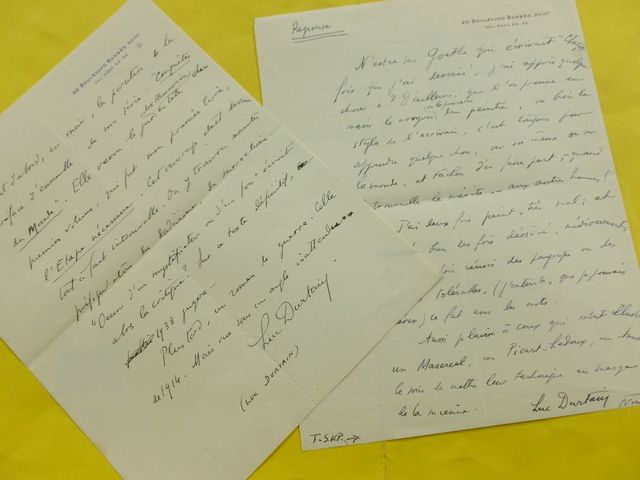 20, BOULEVARD BARBÈS, XVIII
d'abord, en mai, la parution de la
d'ensemble de ma série : "Conquête
du Monde". Elle verra le jour en tête
premier volume, qui fut mon premier livre,
l'Etape nécessaire. Cet ouvrage étant devenu
tout à fait introuvable. On y trouvera
préfiguration du Dadaïsme, du surréalisme.
"Oeuvre d'un mystificateur ou d'un fou" écrivit
alors la critique. Sur ce texte définitif,
1938 jugera...
Plus tard, un roman de guerre. Celle
de 1914. Mais vue sous un angle inattendu
Luc Durtain
(LUC DURTAIN)
Réponse
20, BOULEVARD BARBÈS, XVIII
N'est-ce pas Goethe qui écrivait "Chaque
fois que j'ai dessiné, j'ai appris quelque
chose"? D'ailleurs, que l'on prenne en
main le crayon du peintre, ou bien le
stylo de l'écrivain, c'est toujours pour
apprendre quelque chose, sur soi-même ou sur
le monde, et tâcher d'en faire part, quand
la trouvaille le mérite, aux autres hommes!
J'ai deux fois peint, très mal; et
bien des fois dessiné, médiocrement
réussi des paysages ou des
tolérables, (j'entends, que je pouvais
ce fut avec les mots.
Aussi plaise à ceux qui m'ont illustré
un Masereel, un Picart Ledoux, un
le soin de mettre leur technique en marge
de la mienne.
Luc Durtain
T.S.V.P. →